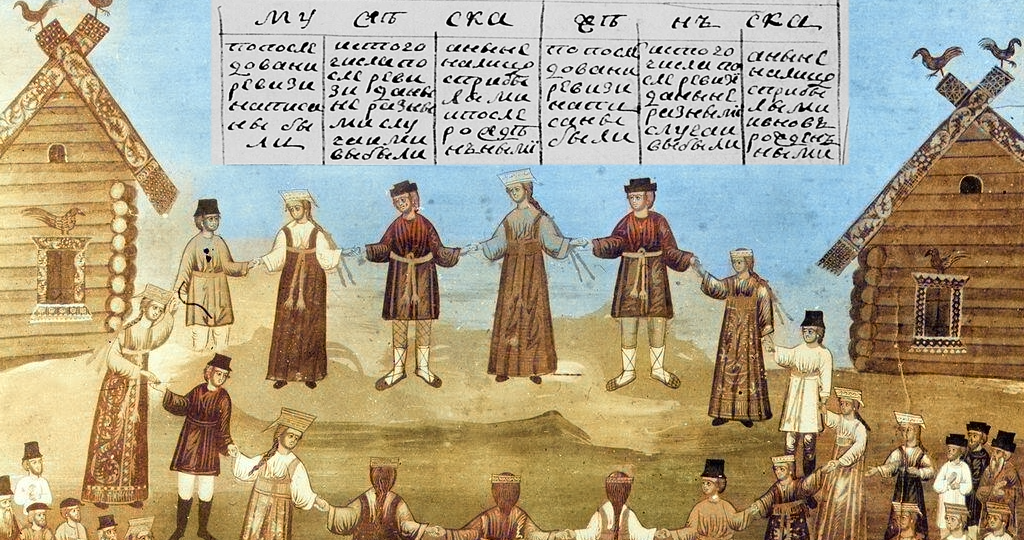 МУ ЖЪ СКА ЖЪ НЪ СКА
попосле
довани
ревизи
написа
ны бы
ли
истого
числа по
сле реви
зи даны
не разны
ми слу
чаими
выбыли
аныне
налицо
стрибы
лыми
ипосле
ро
нъными
по после
довани
ревизи
напи
саны
были
истого
числа по
сле ревизи
даныне
разными
случаи
выбыли
аныне
налицо
стрибы
лыми
ивновъ
рожденъ
ными